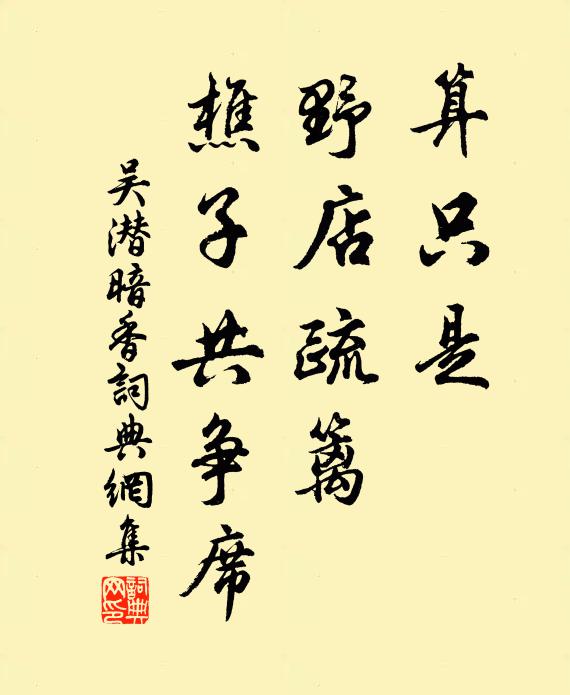 算只是
野店疏篱
樵子共争席
吴潜暗香詞典網集
詞典网印